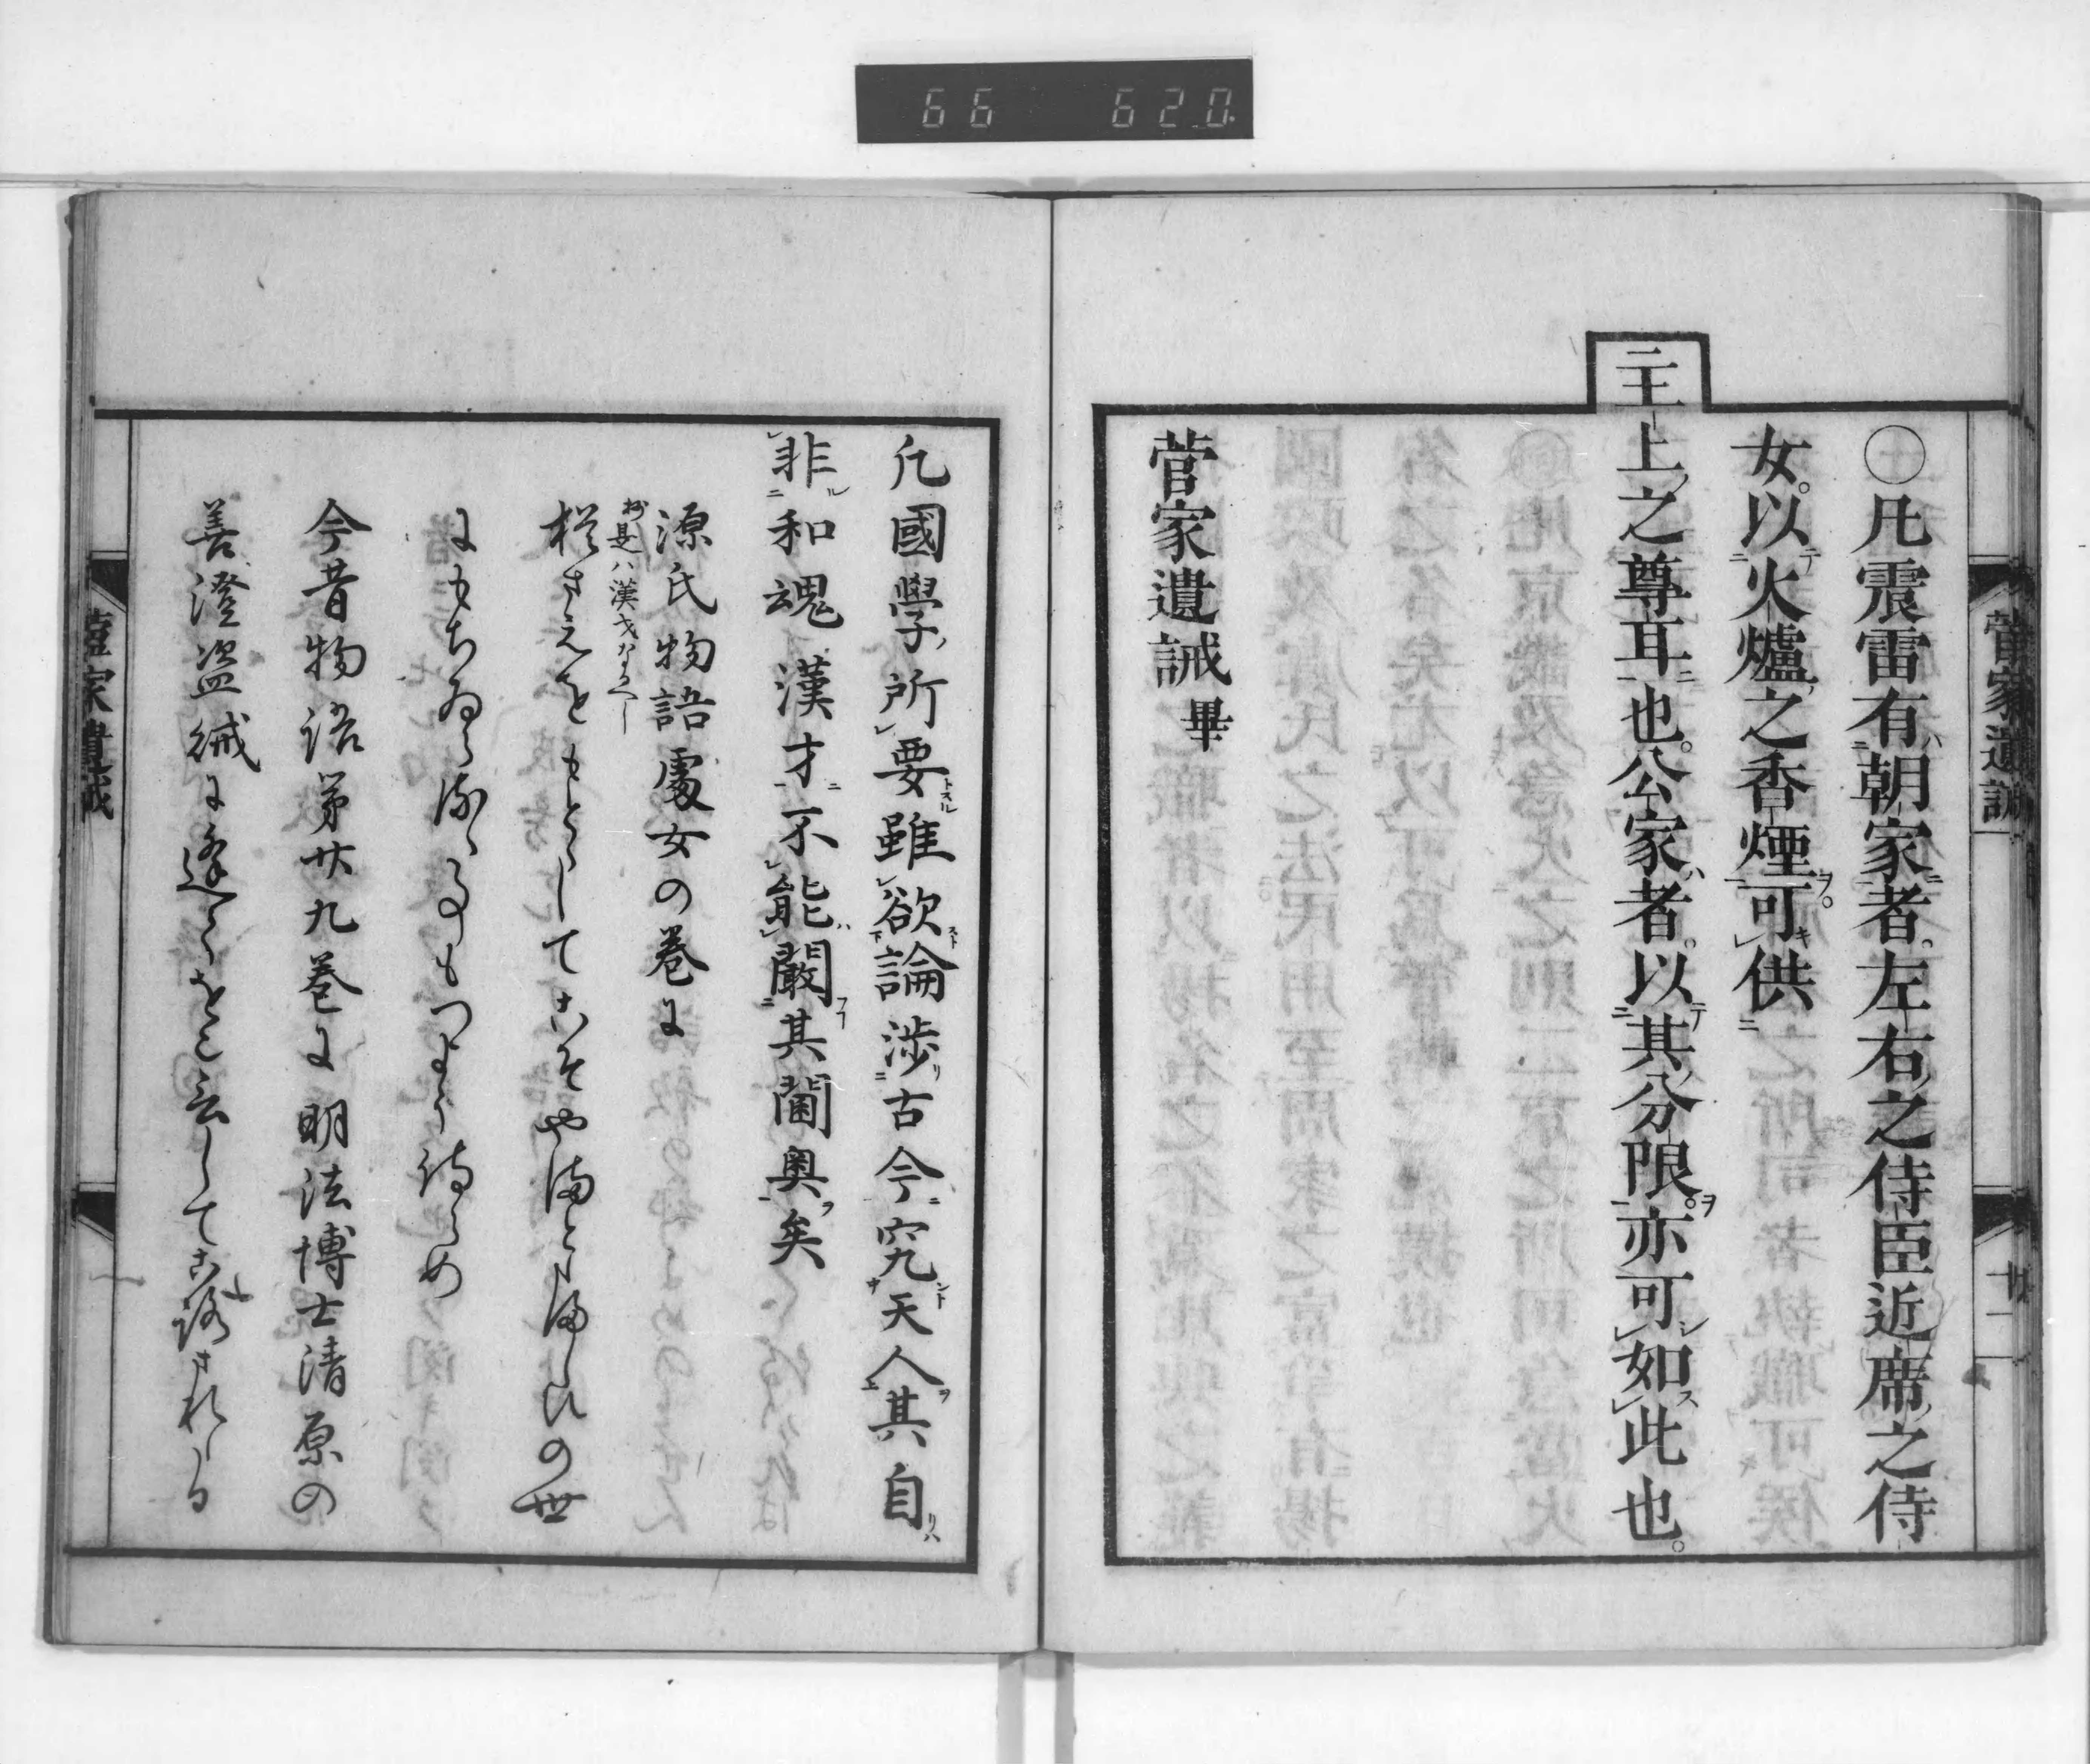 66 620
菅家遺誡
廿一
〇凡震雷有朝家者。左右之侍臣近席之侍
女。以火爐之香煙。可供
主上之尊耳也。公家者。以其分限。亦可如此也。
菅家遺誡畢
凡國學所要雖欲論涉古今究天人其自
非和魂漢才不能闞其閫奥矣
源氏物語處女の巻に
猶さえをもとゝしてこそやまとたましひの世
にもちゐらるゝ方もつよう侍らめ
今昔物語第廿九巻に明法博士清原の
善澄盗
菅家遺誡